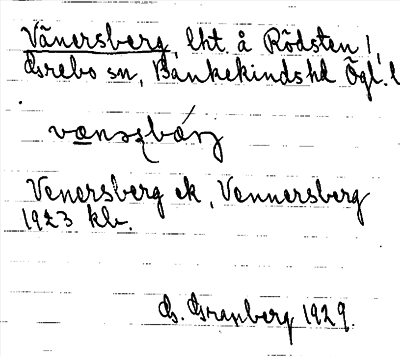 Vänersberg, lht. å Rödsten 1,
Grebo sn, Bankekinds hd Ögl. l
Venersberg ek, Vennersberg
1923 kb.
G. Granberg 1929.